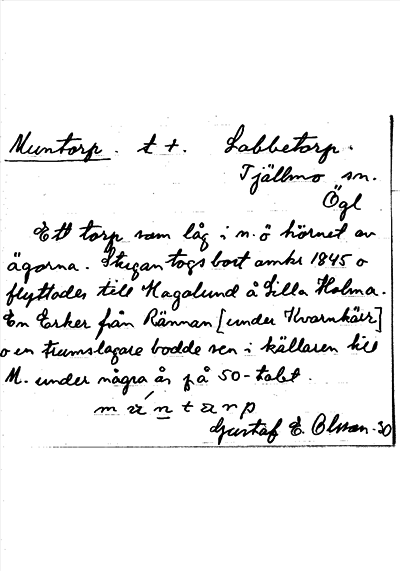 Muntorp. t t. Labbetorp.
Tjällmo sn.
Ögl
Ett torp som låg i n.ö hörnet av
ägorna. Stugan togs bort omkr 1845 o
flyttades till Hagalund å Lilla Holma.
En Erker från Rännan [under Kvarnkärr]
o en trumslagare bodde sen i källaren till
M. under några år på 50-talet.
Gustaf E. Olsson -30